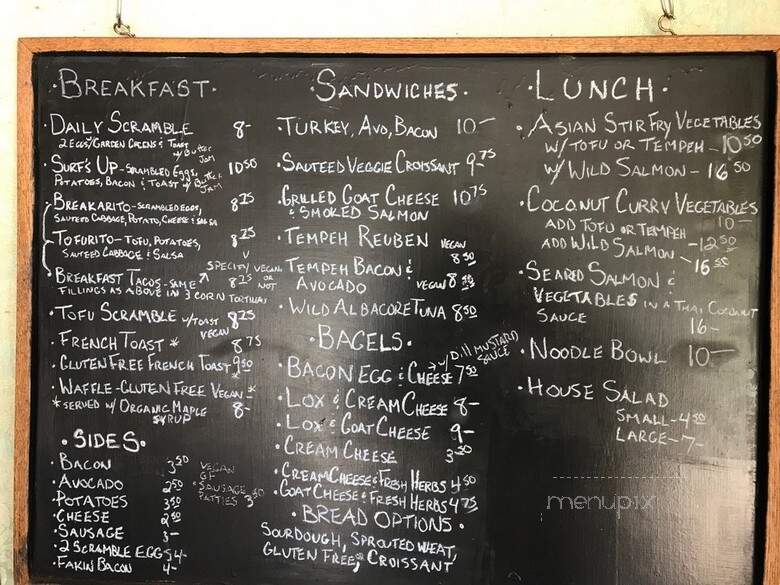 BREAKFAST.
·DAILY SCRAMBLE 8-
2 EGGS/GARDEN GREENS & TOAST
w/ Butter
JAM
·SURF'S UP-SCRAMBLED EGGS, 10 50
POTATOES, BACON & TOAST w/ Butter
JAM
·BREAKARITO-SCRAMBLED EGGS, 8 25
SAUTEED CABBAGE, POTATO, CHEESE & SALSA
·TOFURITO-TOFU, POTATOES, 8 25
SAUTEED CABBAGE & SALSA V
SPECIFY VEGAN
OR
NOT
·BREAKFAST TACOS-SAME 8 25
FILLINGS AS ABOVE IN 3 CORN TORTILLAS
·TOFU SCRAMBLE w/TOAST 8 25
VEGAN
·FRENCH TOAST * 8 75
·GLUTEN FREE FRENCH TOAST 9 50
*
·WAFFLE-GLUTEN FREE VEGAN *
*SERVED w/ ORGANIC MAPLE 8-
SYRUP
·SIDES·
·BACON 3 50
·AVOCADO 2 50
·POTATOES 3 50
·CHEESE 2 50
·SAUSAGE 3-
·2 SCRAMBLE EGGS 4-
·FAKIN BACON 4-
VEGAN
GF
·SAUSAGE
PATTIES 3 50
·SANDWICHES·
·TURKEY, AVO, BACON 10-
·SAUTEED VEGGIE CROISSANT 9 75
·GRILLED GOAT CHEESE 10 75
& SMOKED SALMON
·TEMPEH REUBEN VEGAN 8 50
·TEMPEH BACON &
AVOCADO VEGAN 8 50
·WILD ALBACORE TUNA 8 50
·BAGELS·
·BACON EGG & CHEESE 7 50
w/ Dill MUSTARD
SAUCE
·LOX & CREAM CHEESE 8-
·LOX & GOAT CHEESE 9-
·CREAM CHEESE 3 50
·CREAM CHEESE & FRESH HERBS 4 50
·GOAT CHEESE & FRESH HERBS 4 75
·BREAD OPTIONS·
SOURDOUGH, SPROUTED WHEAT,
GLUTEN FREE, CROISSANT
·LUNCH·
·ASIAN STIR FRY VEGETABLES
W/ TOFU OR TEMPEH - 10 50
W/ WILD SALMON - 16 50
·COCONUT CURRY VEGETABLES
10-
ADD TOFU OR TEMPEH
-12 50
ADD WILD SALMON
-16 50
·SEARED SALMON &
VEGETABLES IN A THAI COCONUT
SAUCE 16-
·NOODLE BOWL 10-
·HOUSE SALAD
SMALL-4 50
LARGE-7-
menupix